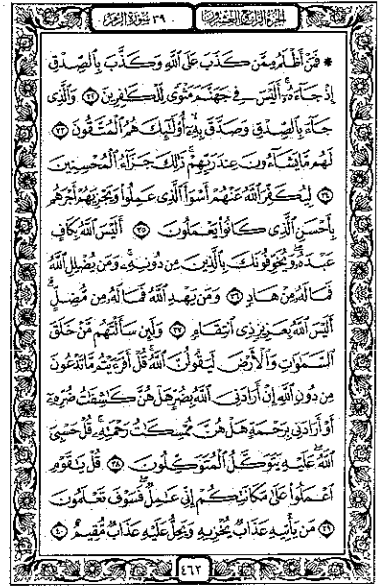 الجزء الرابع والعشرون ٣٩ سورة الزمر
* فَمَنْ أَظْلَمُ مِمَّن كَذَبَ عَلَى اللَّهِ وَكَذَّبَ بِالصِّدْقِ
إِذْ جَاءَهُ أَلَيْسَ فِي جَهَنَّمَ مَثْوًى لِلْكَافِرِينَ ٣٢ وَالَّذِي
جَاءَ بِالصِّدْقِ وَصَدَّقَ بِهِ أُولَٰئِكَ هُمُ الْمُتَّقُونَ ٣٣
لَهُم مَّا يَشَاءُونَ عِندَ رَبِّهِمْ ذَٰلِكَ جَزَاءُ الْمُحْسِنِينَ
٣٤ لِيُكَفِّرَ اللَّهُ عَنْهُمْ أَسْوَأَ الَّذِي عَمِلُوا وَيَجْزِيَهُمْ أَجْرَهُم
بِأَحْسَنِ الَّذِي كَانُوا يَعْمَلُونَ ٣٥ أَلَيْسَ اللَّهُ بِكَافٍ
عَبْدَهُ وَيُخَوِّفُونَكَ بِالَّذِينَ مِن دُونِهِ وَمَن يُضْلِلِ اللَّهُ
فَمَا لَهُ مِنْ هَادٍ ٣٦ وَمَن يَهْدِ اللَّهُ فَمَا لَهُ مِن مُّضِلٍّ
أَلَيْسَ اللَّهُ بِعَزِيزٍ ذِي انتِقَامٍ ٣٧ وَلَئِن سَأَلْتَهُم مَّنْ خَلَقَ
السَّمَٰوَٰتِ وَالْأَرْضَ لَيَقُولُنَّ اللَّهُ قُلْ أَفَرَءَيْتُم مَّا تَدْعُونَ
مِن دُونِ اللَّهِ إِنْ أَرَادَنِيَ اللَّهُ بِضُرٍّ هَلْ هُنَّ كَٰشِفَٰتُ ضُرِّهِ
أَوْ أَرَادَنِي بِرَحْمَةٍ هَلْ هُنَّ مُمْسِكَٰتُ رَحْمَتِهِ قُلْ حَسْبِيَ
اللَّهُ عَلَيْهِ يَتَوَكَّلُ الْمُتَوَكِّلُونَ ٣٨ قُلْ يَٰقَوْمِ
اعْمَلُوا عَلَىٰ مَكَانَتِكُمْ إِنِّي عَٰمِلٌ فَسَوْفَ تَعْلَمُونَ
٣٩ مَن يَأْتِيهِ عَذَابٌ يُخْزِيهِ وَيَحِلُّ عَلَيْهِ عَذَابٌ مُّقِيمٌ ٤٠
٤٦٢